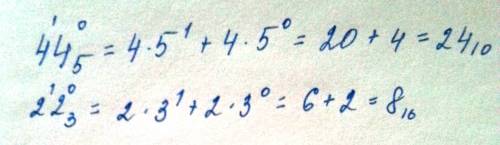 4¹4⁰₅ = 4·5¹ + 4·5⁰ = 20 + 4 = 24₁₀
2¹2⁰₃ = 2·3¹ + 2·3⁰ = 6 + 2 = 8₁₀